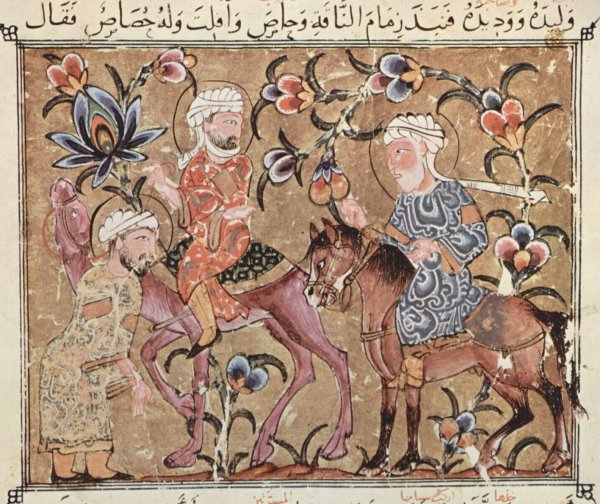 وَلِيدُهُ وَوَدِيدُهُ فَنَبَذَ زِمَامَ النَّاقَةِ وَحَاصَ وَافْلَتَ وَلَهُ حُصَاصٌ فَقَال